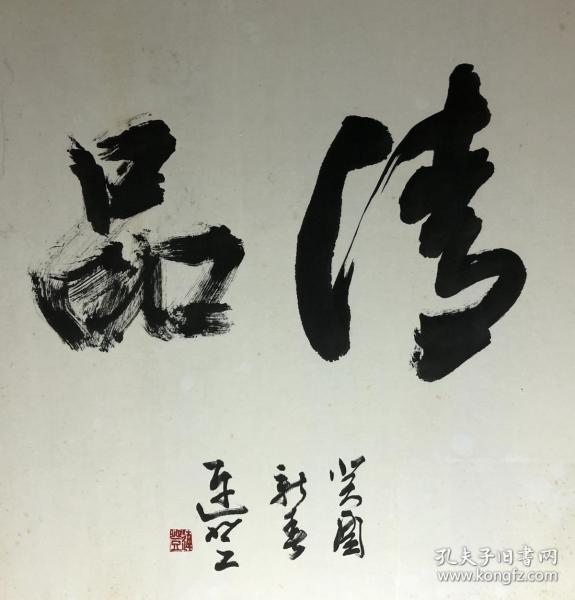 清品
癸酉
新春
孔夫子旧书网
www.kongfz.com